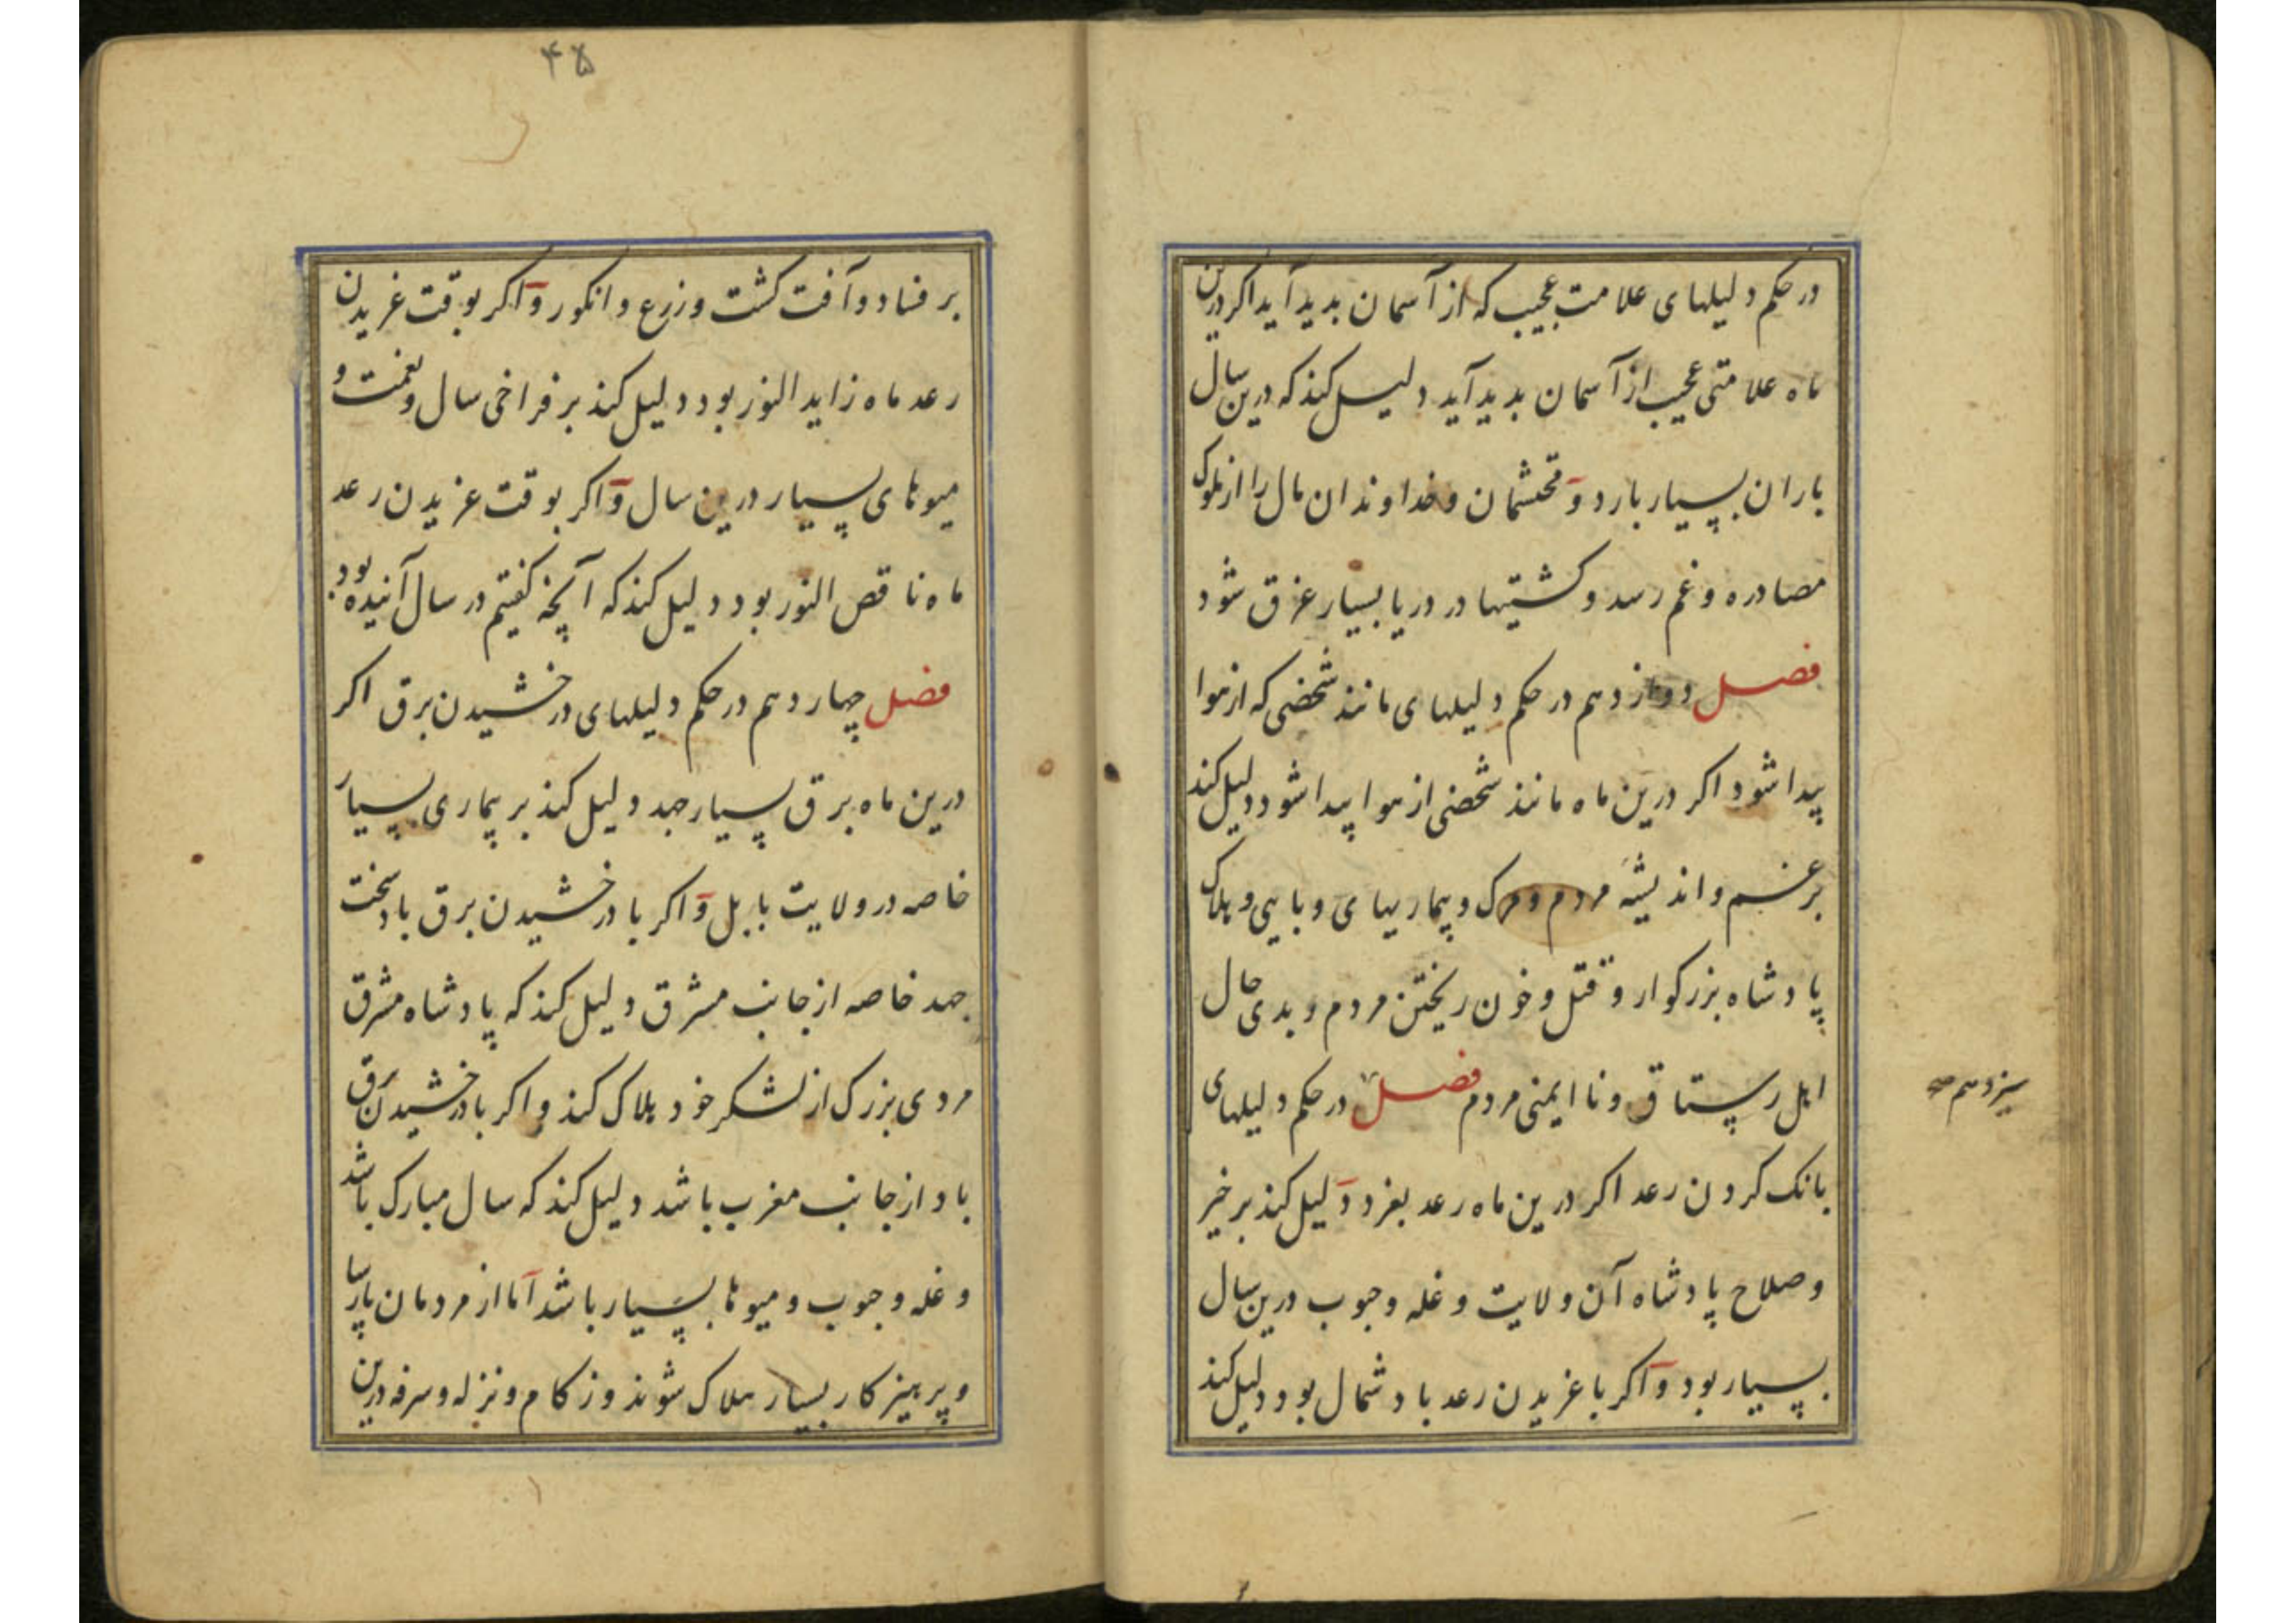 در حکم دلیلهای علامت عجیب که از آسمان بدید آید اکر درین
ماه علامتی عجیب از آسمان بدید آید دلیل کند که درین سال
باران بسیار بارد و محتشمان و خداوندان مال را از ملوک
مصادره و غم رسد و کشتیها در دریا بسیار غرق شود
فصل دوازدهم در حکم دلیلهای مانند شخصی که از هوا
پیدا شود اکر درین ماه مانند شخصی از هوا پیدا شود دلیل کند
بر غم و اندیشهٔ مردم و مرک و بیماریهای وبایی و هلاک
پادشاه بزرکوار و قتل و خون ریختن مردم و بدی حال
اهل رستاق و نا ایمنی مردم فصل در حکم دلیلهای
سیزدهم صح
بانک کردن رعد اکر درین ماه رعد بغرد دلیل کند بر خیر
و صلاح پادشاه آن ولایت و غله و حبوب درین سال
بسیار بود و اکر با غریدن رعد باد شمال بود دلیل کند
۴۵
بر فساد و آفت کشت و زرع و انکور و اکر بوقت غریدن
رعد ماه زاید النور بود دلیل کند بر فراخی سال و نعمت و
میوهای بسیار درین سال و اکر بوقت غریدن رعد
ماه ناقص النور بود دلیل کند که آنچه کفتیم در سال آینده بود
فصل چهاردهم در حکم دلیلهای درخشیدن برق اکر
درین ماه برق بسیار جهد دلیل کند بر بیماری بسیار
خاصه در ولایت بابل و اکر با درخشیدن برق باد سخت
جهد خاصه از جانب مشرق دلیل کند که پادشاه مشرق
مردی بزرک از لشکر خود هلاک کند و اکر با درخشیدن برق
باد از جانب مغرب باشد دلیل کند که سال مبارک باشد
و غله و حبوب و میوها بسیار باشد اما از مردمان پارسا
و پرهیزکار بسیار هلاک شوند و زکام و نزله و سرفه درین